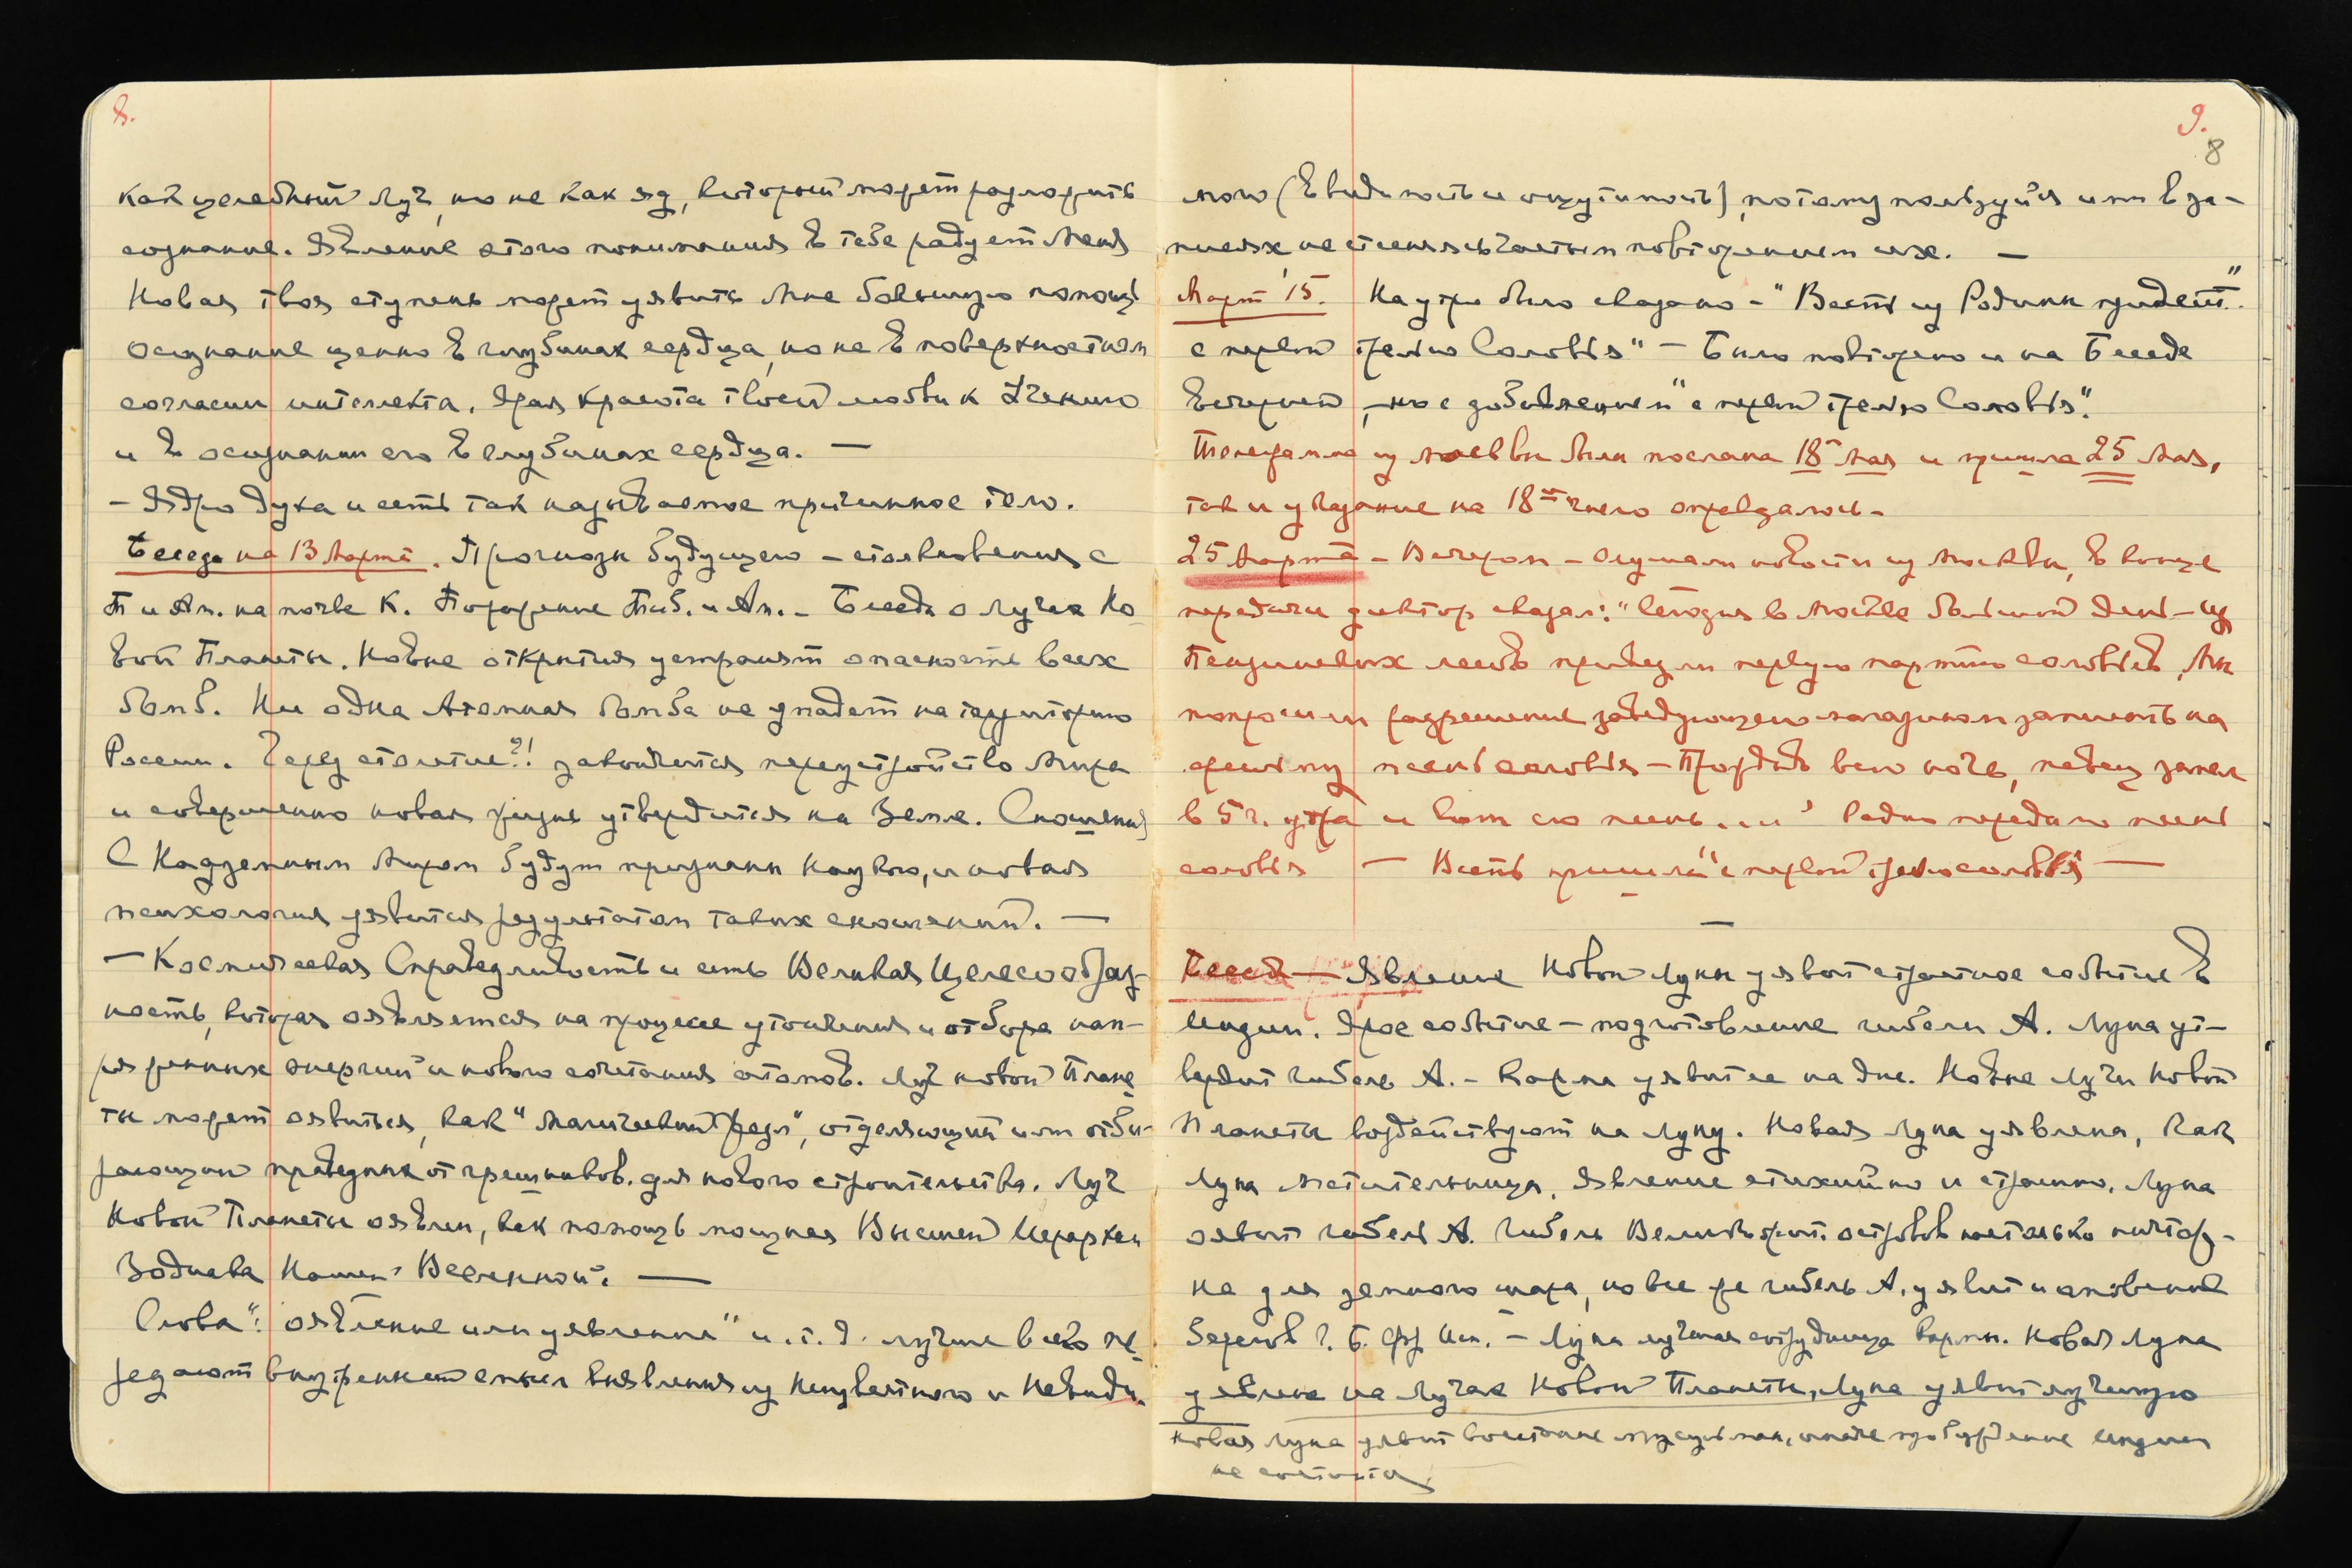 8.
как целебный Луч, но не как яд, который может разложить
сознание. Явление этого понимания в тебе радует Меня
Новая твоя ступень может уявить Мне большую помощь
Осознание ценно в глубинах сердца, но не в поверхностном
согласии интеллекта. Ярая красота твоей любви к Учению
и в осознании его в глубинах сердца. —
– Ядро духа и есть так называемое причинное тело.
Беседа на 13 Марта. Прогнозы будущего – столкновения с
Т и Ам. на почве К. Поражение Тиб. и Ам. – Беседа о Лучах Но-
вой Планеты. Новые открытия устранят опасность всех
бомб. Ни одна Атомная бомба не упадет на территорию
России. Через столетие?! закончится переустройство Мира
и совершенно новая жизнь утвердится на Земле. Сношения
С Надземным Миром будут признаны Наукою, и новая
психология уявится результатом таких сношений. —
– Космическая Справедливость и есть Великая Целесообраз-
ность, которая оявляется на процессе утончения и отбора нап-
ряженных энергий и нового сочетания атомов. Луч новой Плане-
ты может оявиться, как "Магический жезл", отделяющий или отби-
рающий праведных от грешников. для нового строительства. Луч
Новой Планеты оявлен, как помощь мощная Высшей Иерархии
Зодиака Нашей Вселенной. —
Слова: "оявление или уявление" и.т.д. лучше всего пе-
редают внутренний смысл выявления из Неизвестного и Невиди-
9.
8
мого (в видимость и ощутимость), потому пользуйся ими в за-
писях не стесняясь частым повторением их. —
Март 15. На утро было сказано – "Весть из Родины придет"
с первой трелью Соловья" – Было повторено и на Беседе
Вечерней, – но с добавлением "с первой трелью Соловья".
Телеграмма из Москвы была послана 18го Мая и пришла 25 Мая,
так и указание на 18ое число оправдалось –
25 Марта – Вечером – слушали новости из Москвы, в конце
передачи диктор сказал: "Сегодня в Москве большой день – из
лесов привезли первую партию соловьев, Мы
попросили разрешение заведующего магазином записать на
песнь соловья – Прождав всю ночь, певец запел
в 5 ч. утра и вот его песнь... и Радио передало песнь
соловья — Весть пришла "с первой трелью соловья —
Беседа – Явление Новой Луны уявит страшное событие в
Индии. Ярое событие – подготовление гибели А. Луна ут-
вердит гибель А. – Карма уявится на дне. Новые Лучи Новой
Планеты воздействуют на Луну. Новая Луна уявлена, как
Луна мстительница. Явление стихийно и страшно. Луна
оявит гибель А. Гибель Великобрит. островов настолько
на для земного шара, но все же гибель А. уявит и
берегов – Луна лучшая сотрудница Кармы. Новая Луна
уявлена на Лучах Новой Планеты, Луна уявит лучшую
Новая Луна уявит восстание мусульман, иначе пробуждение Индии
не состоится.